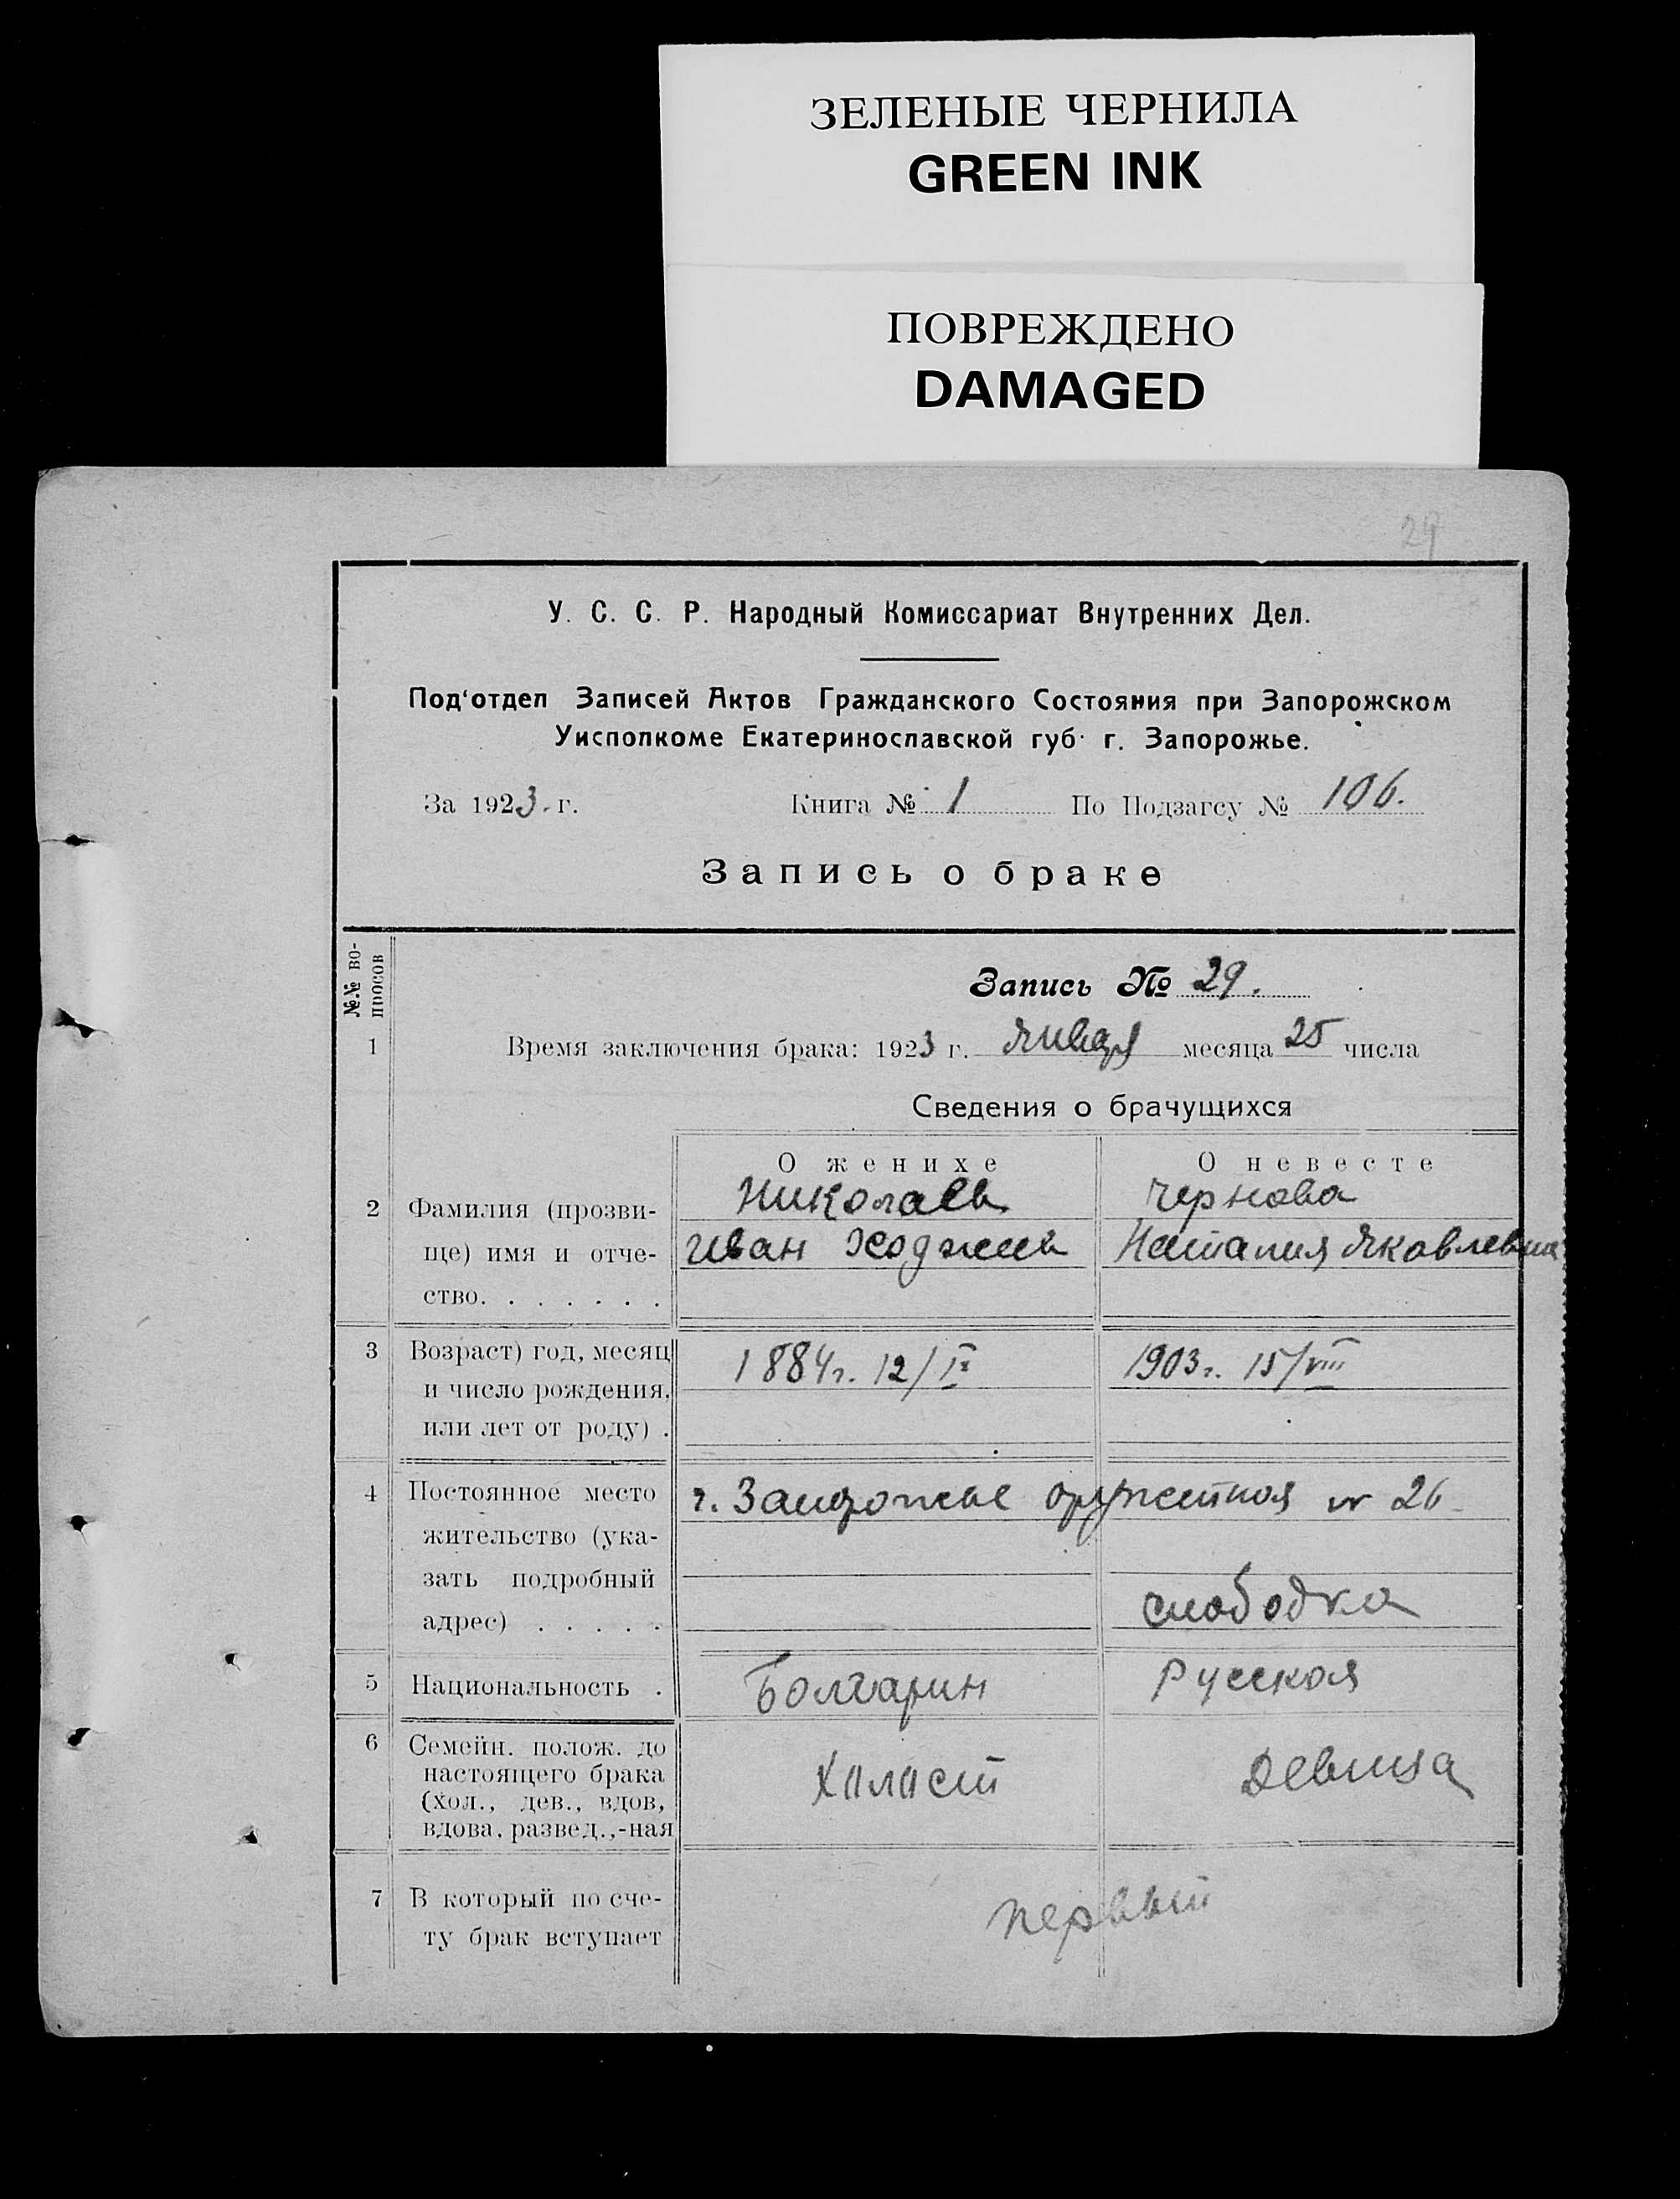 ЗЕЛЕНЫЕ ЧЕРНИЛА
GREEN INK
ПОВРЕЖДЕНО
DAMAGED
29
У. С. С. Р. Народный Комиссариат Внутренних Дел.
Под‘отдел Записей Актов Гражданского Состояния при Запорожском
Уисполкоме Екатеринославской губ. г. Запорожье.
За 1923. г. Книга № 1 По Подзагсу № 106.
Запись о браке
№№ во-
просов
Запись № 29.
1 Время заключения брака: 1923 г. Января месяца 25 числа
Сведения о брачущихся
О женихе О невесте
2 Фамилия (прозви- Николаев Чернова
ще) имя и отче- Иван Наталия Яковлевна
ство. . . . . . .
3 Возраст) год, месяц 1884г. 12/ 1903г. 15/VIII
и число рождения,
или лет от роду) .
4 Постоянное место г. Запорожье № 26
жительство (ука-
зать подробный
адрес) . . . . . слободка
5 Национальность . Болгарин Русская
6 Семейн. полож. до
настоящего брака Халаст Девица
(хол., дев., вдов,
вдова, развед.,-ная
7 В который по сче- первый
ту брак вступает